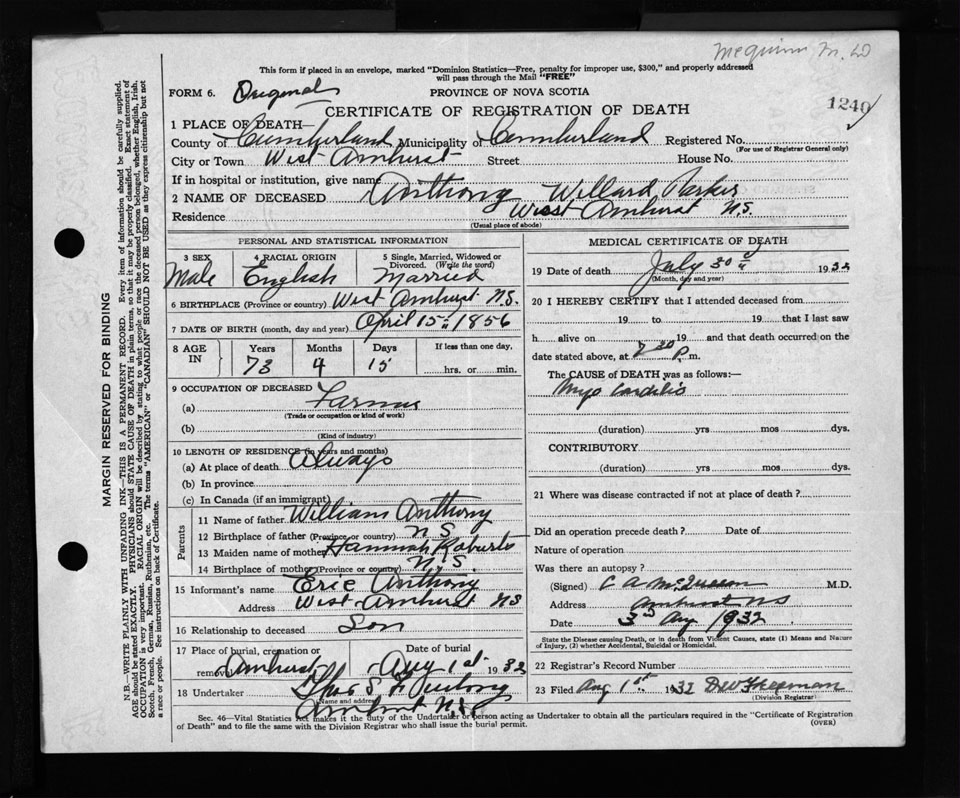 McQuinn M.D
This form if placed in an envelope, marked "Dominion Statistics—Free, penalty for improper use, $300," and properly addressed
will pass through the Mail "FREE"
FORM 6. Original PROVINCE OF NOVA SCOTIA
CERTIFICATE OF REGISTRATION OF DEATH
1240
1 PLACE OF DEATH—
County of Cumberland Municipality of Cumberland Registered No.
(For use of Registrar General only)
City or Town West Amherst Street House No.
If in hospital or institution, give name
2 NAME OF DECEASED Anthony Willard Parker
Residence West Amherst N.S.
(Usual place of abode)
PERSONAL AND STATISTICAL INFORMATION
3 SEX 4 RACIAL ORIGIN 5 Single, Married, Widowed or
Divorced. (Write the word)
Male English Married
6 BIRTHPLACE (Province or country) West Amherst N.S.
7 DATE OF BIRTH (month, day and year) April 15 1856
8 AGE IN Years Months Days If less than one day,
73 4 15 hrs. or min.
9 OCCUPATION OF DECEASED
(a) Farmer
(Trade or occupation or kind of work)
(b)
(Kind of industry)
10 LENGTH OF RESIDENCE (in years and months)
(a) At place of death Always
(b) In province
(c) In Canada (if an immigrant)
Parents
11 Name of father William Anthony
12 Birthplace of father (Province or country) N S
13 Maiden name of mother Hannah Roberts
14 Birthplace of mother (Province or country) N.S
15 Informant's name Eric Anthony
Address West Amherst NS
16 Relationship to deceased Son
17 Place of burial, cremation or removal Amherst Date of burial Aug 1st 1932
18 Undertaker Thos S
(Name and address)
Amherst N.S.
MEDICAL CERTIFICATE OF DEATH
19 Date of death July 30 1932
(Month, day and year)
20 I HEREBY CERTIFY that I attended deceased from
19 to 19 that I last saw
h alive on 19 and that death occurred on the
date stated above, at 7 30 P. m.
The CAUSE of DEATH was as follows:—
Myo Carditis
(duration) yrs mos dys.
CONTRIBUTORY
(duration) yrs mos dys.
21 Where was disease contracted if not at place of death?
Did an operation precede death? Date of
Nature of operation
Was there an autopsy?
(Signed) C A McQueen M.D.
Address Amherst NS
Date 3rd Aug 1932
State the Disease causing Death, or in death from Violent Causes, state (1) Means and Nature
of Injury, (2) whether Accidental, Suicidal or Homicidal.
22 Registrar's Record Number
23 Filed Aug 1st 1932 Freeman
(Division Registrar)
Sec. 46—Vital Statistics Act makes it the duty of the Undertaker or person acting as Undertaker to obtain all the particulars required in the "Certificate of Registration
of Death" and to file the same with the Division Registrar who shall issue the burial permit. (OVER)
MARGIN RESERVED FOR BINDING
N.B.—WRITE PLAINLY WITH UNFADING INK—THIS IS A PERMANENT RECORD. Every item of information should be carefully supplied.
AGE should be stated EXACTLY. PHYSICIANS should STATE CAUSE OF DEATH in plain terms, so that it may be properly classified. Exact statement of
OCCUPATION is very important. RACIAL ORIGIN will be described by stating to what people or race the deceased person belonged, whether English, Irish,
Scotch, French, German, Russian, Ruthenian, etc. The terms "AMERICAN" or "CANADIAN" SHOULD NOT BE USED as they express citizenship but not
a race or people. See instructions on back of Certificate.